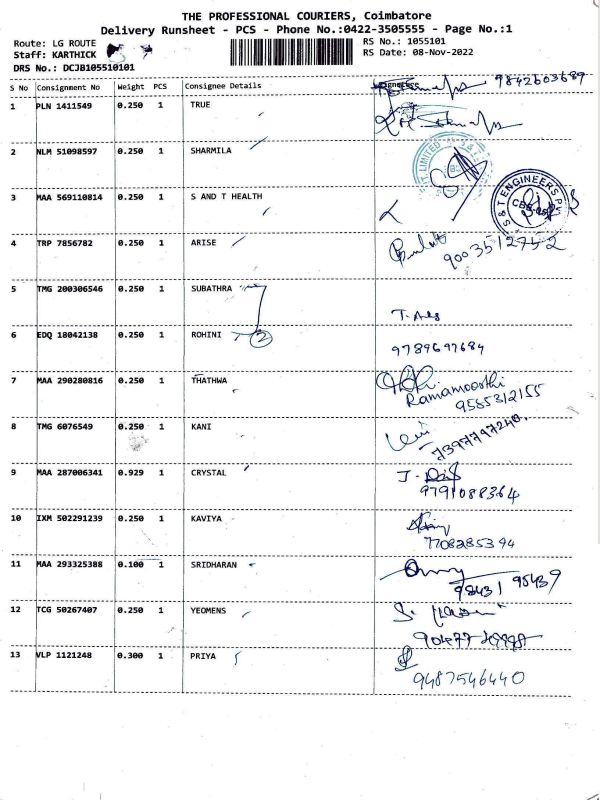 THE PROFESSIONAL COURIERS, Coimbatore
Delivery Runsheet - PCS - Phone No.:0422-3505555 - Page No.:1
Route: LG ROUTE RS No.: 1055101
Staff: KARTHICK RS Date: 08-Nov-2022
DRS No.: DCJB105510101
S No Consignment No Weight PCS Consignee Details 9842603689
1 PLN 1411549 0.250 1 TRUE
2 NLM 51098597 0.250 1 SHARMILA
3 MAA 569110814 0.250 1 S AND T HEALTH S & T ENGINEERS
4 TRP 7856782 0.250 1 ARISE 9003512752
5 TMG 200306546 0.250 1 SUBATHRA
6 EDQ 18042138 0.250 1 ROHINI 2 9789697684
7 MAA 290280816 0.250 1 THATHWA
Ramamoorthi
9585312155
8 TMG 6076549 0.250 1 KANI 7397797240
9 MAA 287006341 0.929 1 CRYSTAL
9791088364
10 IXM 502291239 0.250 1 KAVIYA
7708285394
11 MAA 293325388 0.100 1 SRIDHARAN
98431 95439
12 TCG 50267407 0.250 1 YEOMENS
90477
13 VLP 1121248 0.300 1 PRIYA
9487546440